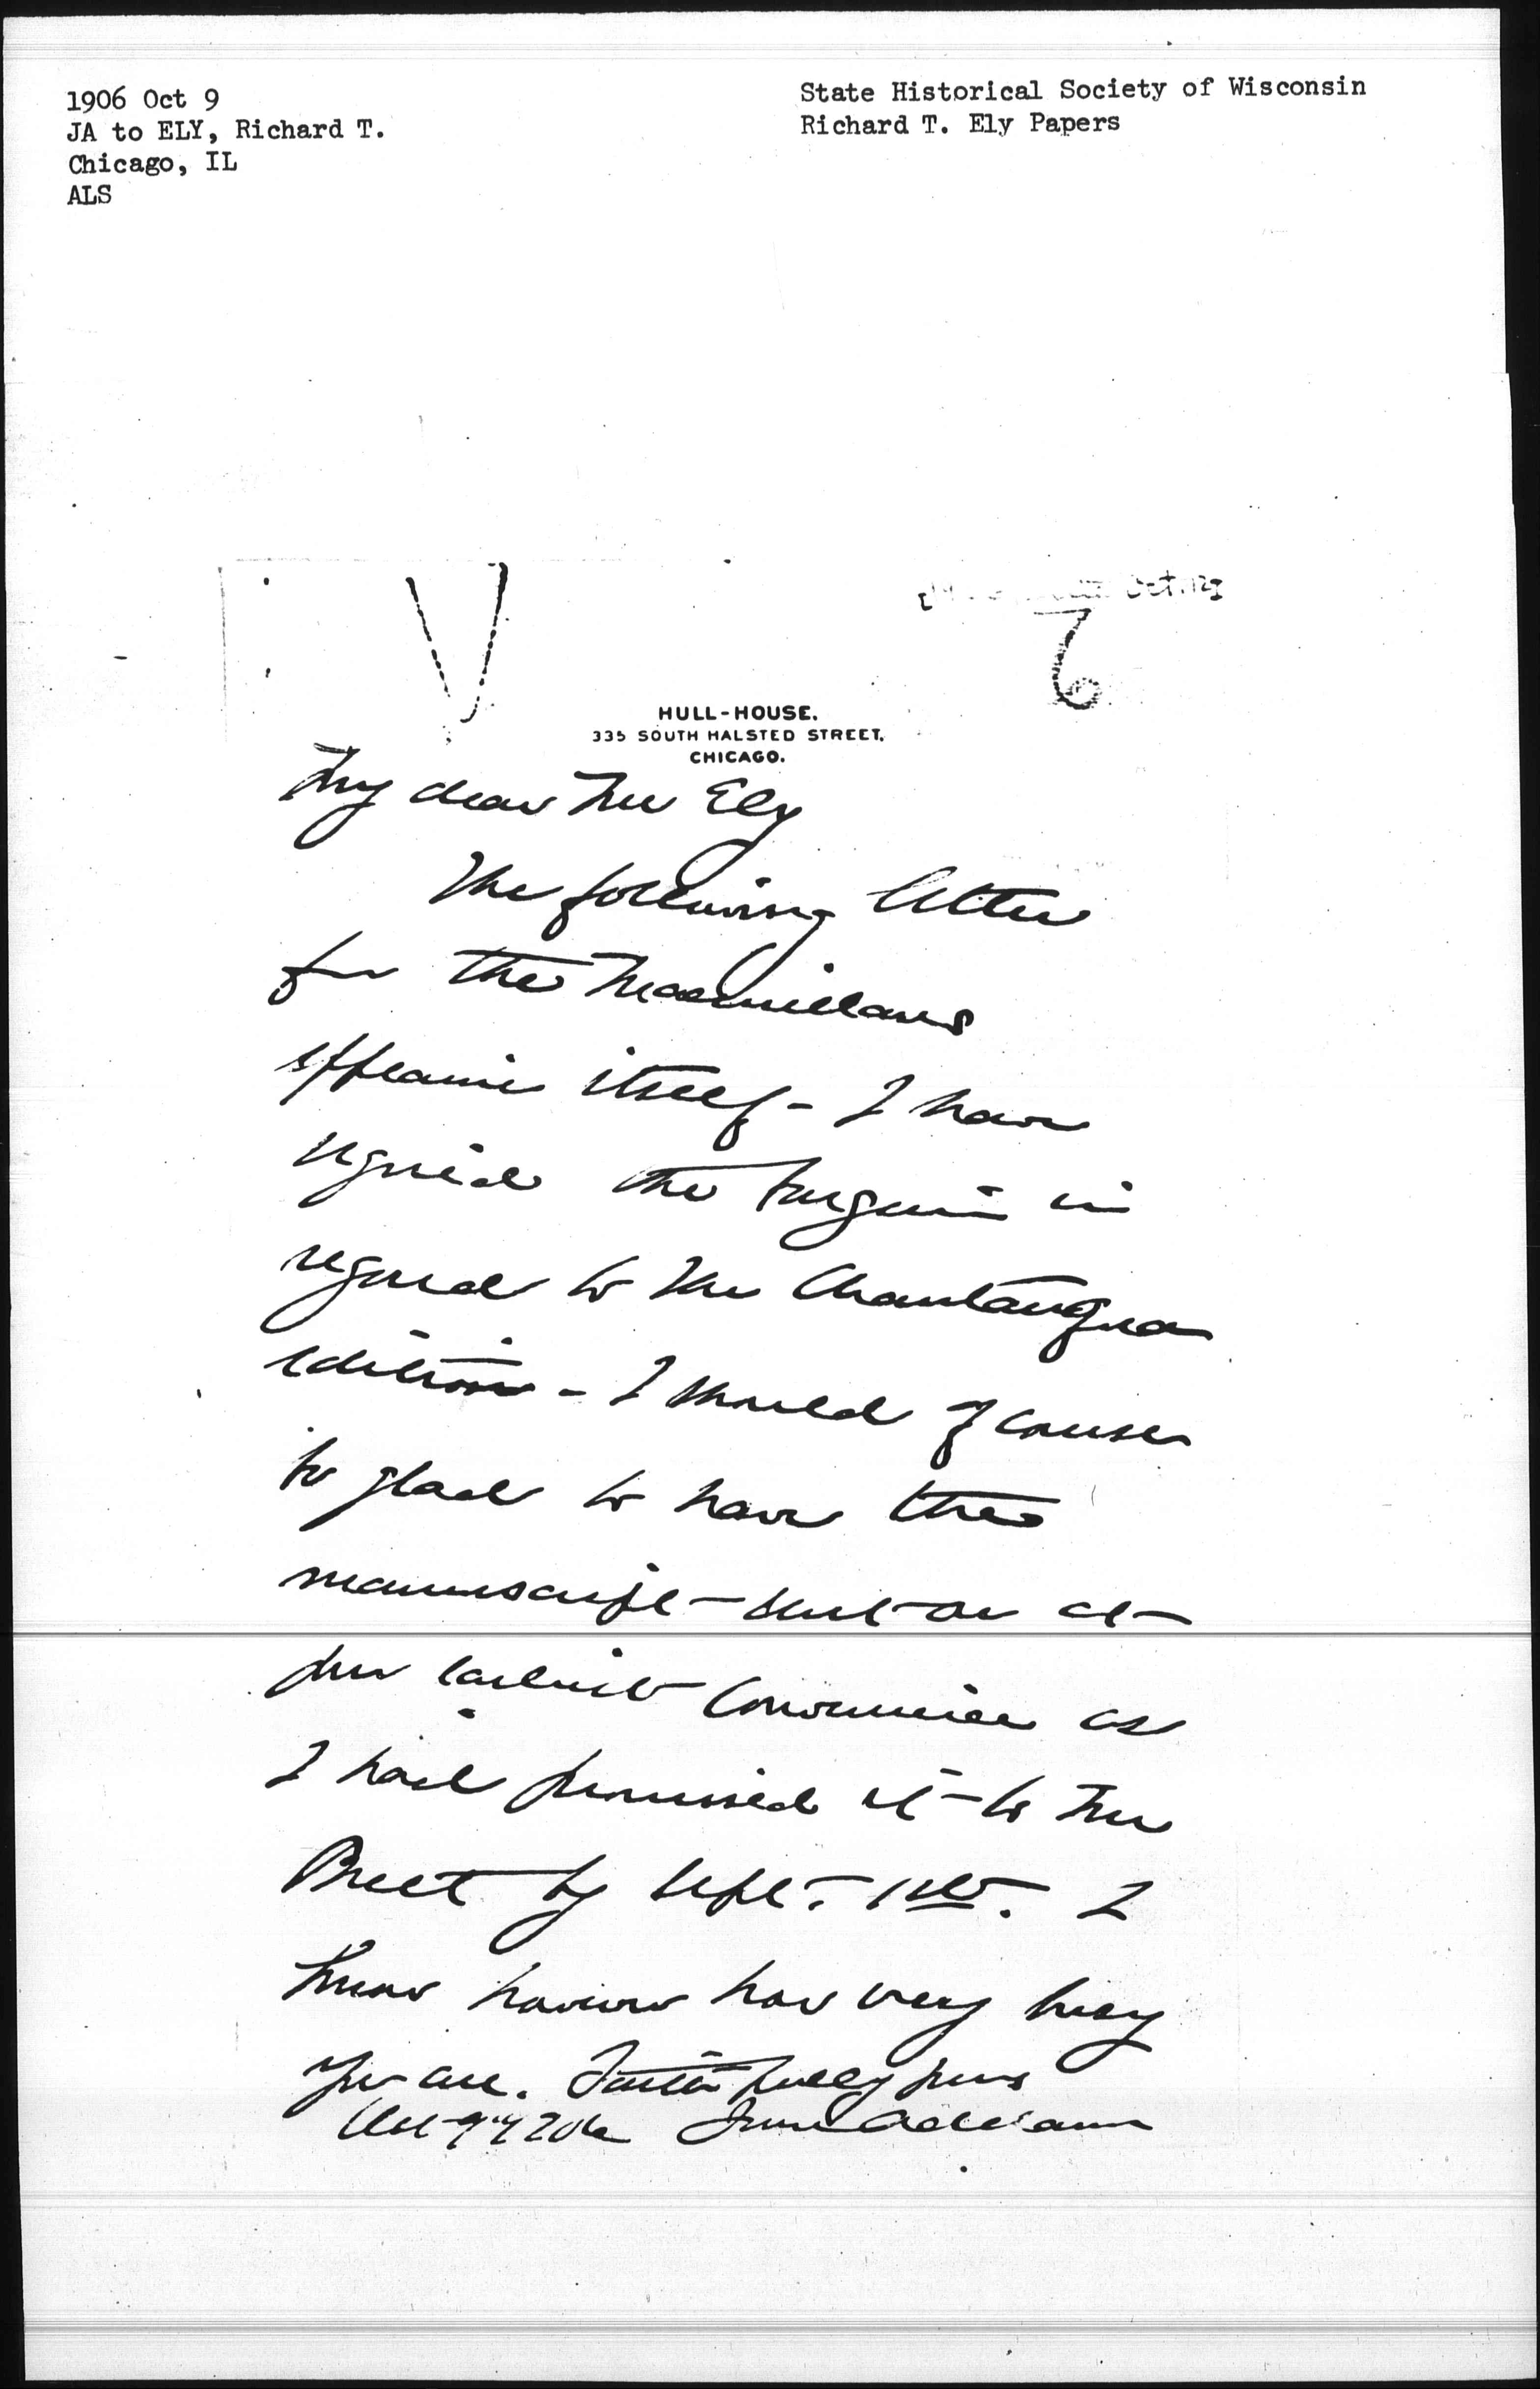 1906 Oct 9
JA to ELY, Richard T.
Chicago, IL
ALS
State Historical Society of Wisconsin
Richard T. Ely Papers
Oct.12
HULL-HOUSE.
335 SOUTH HALSTED STREET,
CHICAGO.
My dear Mr Ely
The following letter
from the Macmillans
explains itself - I have
signed the in
regard to the Chautauqua
edition - I should of course
be glad to have the
manuscript sent on at
your earliest convenience as
I had promised it to Mr
Brett by Sept. 1st. I
know however how very busy
you are. Faithfully yours
Oct 9" 06 Jane Addams